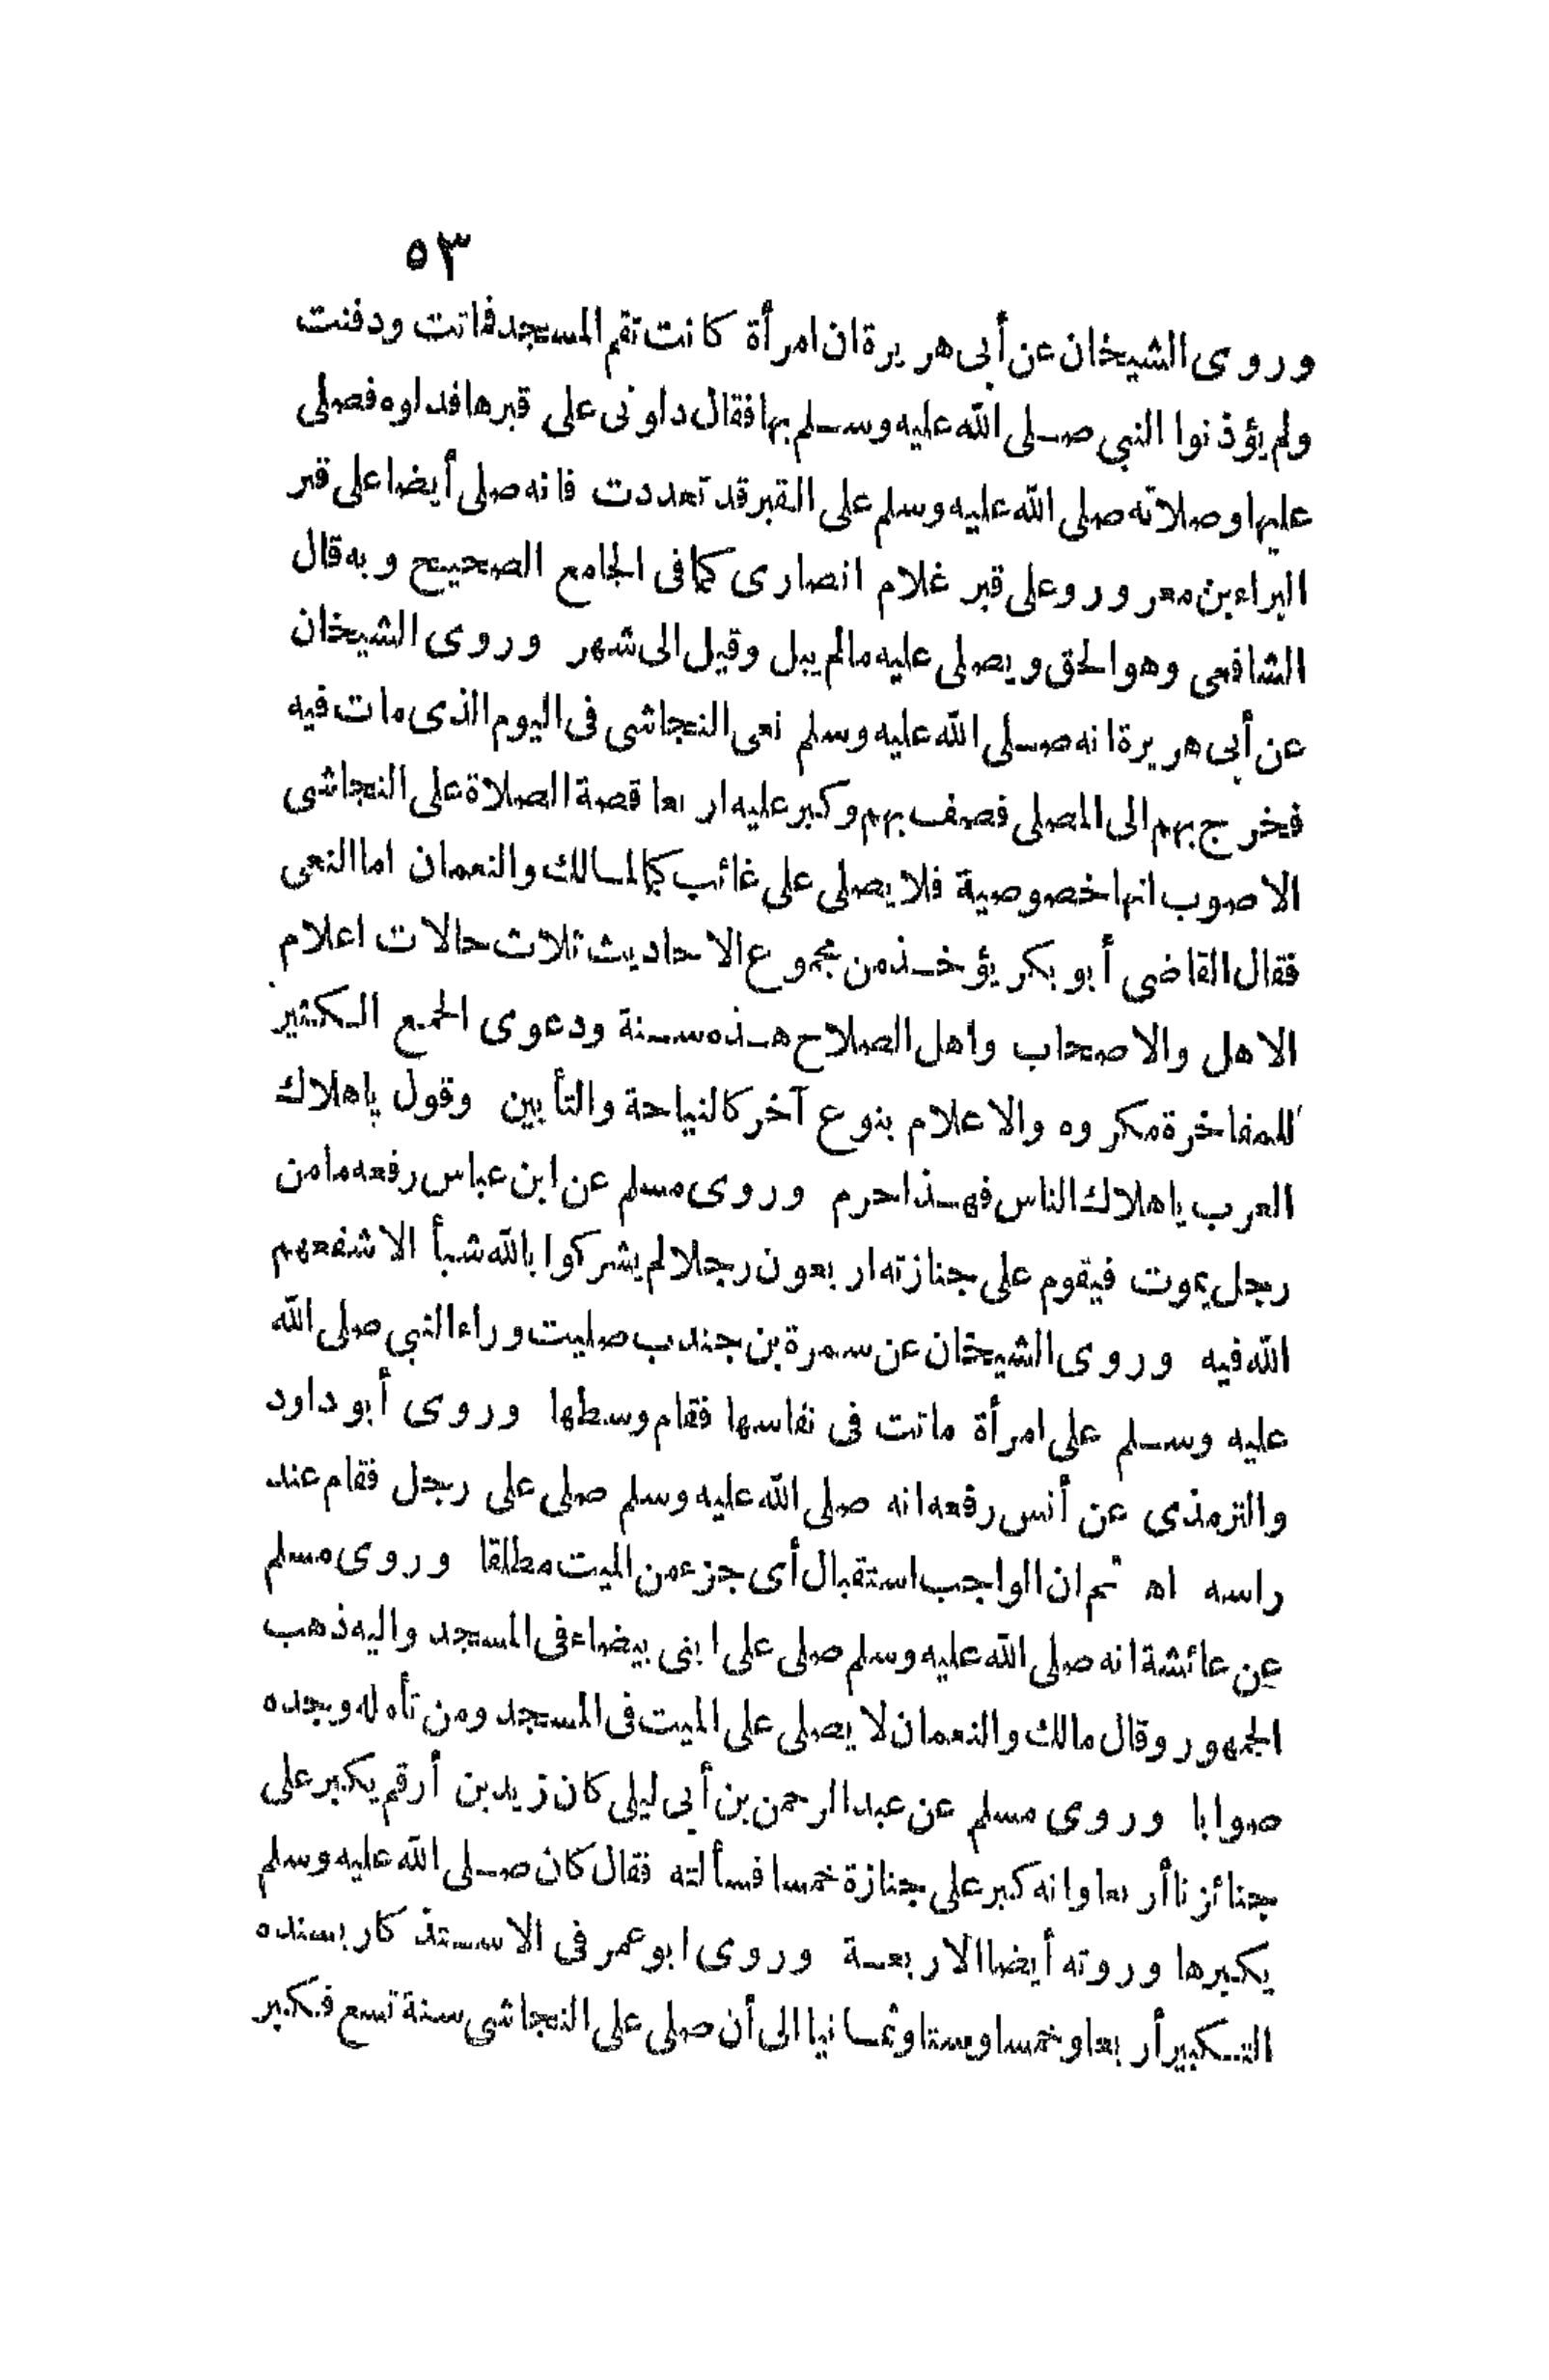 ٥٣
وروى الشيخان عن أبى هريرة ان امرأة كانت تقم المسجد فماتت ودفنت
ولم يؤذنوا النبي صلى الله عليه وسلم بها فقال دلونى على قبرها فدلوه فصلى
عليها وصلاته صلى الله عليه وسلم على القبر قد تعددت فانه صلى أيضا على قبر
البراء بن معرور وعلى قبر غلام انصارى كما فى الجامع الصحيح وبه قال
الشافعى وهو الحق ويصلى عليه مالم يبل وقيل الى شهر وروى الشيخان
عن أبى هريرة انه صلى الله عليه وسلم نعى النجاشى فى اليوم الذى مات فيه
فخرج بهم الى المصلى فصف بهم وكبر عليه اربعا قصة الصلاة على النجاشى
الاصوب انها خصوصية فلا يصلى على غائب كما لمالك والنعمان اما النعى
فقال القاضى أبو بكر يؤخذ من مجموع الاحاديث ثلاث حالات اعلام
الاهل والاصحاب واهل الصلاح هذه سنة ودعوى الجمع الكثير
للمفاخرة مكروه والاعلام بنوع آخر كالنياحة والتأبين وقول ياهلاك
العرب ياهلاك الناس فهذا حرم وروى مسلم عن ابن عباس رفعه مامن
رجل يموت فيقوم على جنازته اربعون رجلا لم يشركوا بالله شيأ الا شفعهم
الله فيه وروى الشيخان عن سمرة بن جندب صليت وراء النبي صلى الله
عليه وسلم على امرأة ماتت فى نفاسها فقام وسطها وروى أبو داود
والترمذى عن أنس رفعه انه صلى الله عليه وسلم صلى على رجل فقام عند
راسه اه ثم ان الواجب استقبال أى جزء من الميت مطلقا وروى مسلم
عن عائشة انه صلى الله عليه وسلم صلى على ابنى بيضاء فى المسجد واليه ذهب
الجمهور وقال مالك والنعمان لا يصلى على الميت فى المسجد ومن تأمله وجده
صوابا وروى مسلم عن عبد الرحمن بن أبى ليلى كان زيد بن أرقم يكبر على
جنائزنا أربعا وانه كبر على جنازة خمسا فسألته فقال كان صلى الله عليه وسلم
يكبرها وروته أيضا الاربعة وروى ابو عمر فى الاستذكار بسنده
التكبير أربعا وخمسا وستا وثمانيا الى أن صلى على النجاشى سنة تسع فكبر